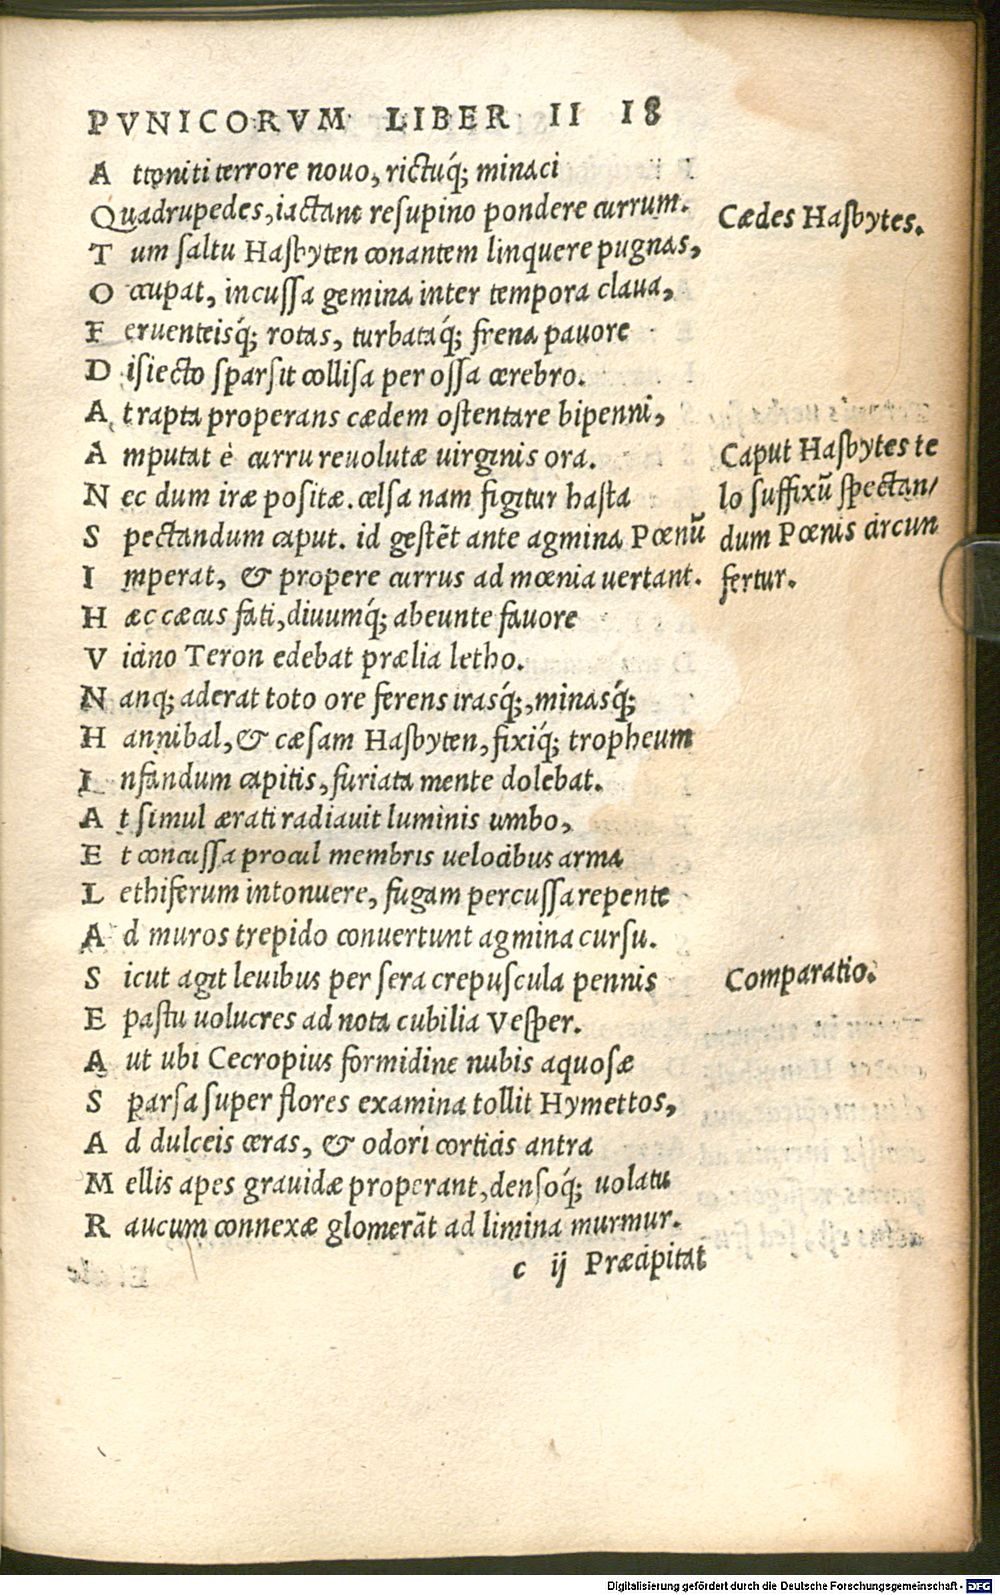 PVNICORVM LIBER II 18
Attoniti terrore nouo, rictuq́; minaci
Quadrupedes, iactant resupino pondere currum.
Tum saltu Hasbyten conantem linquere pugnas,
Occupat, incussa gemina inter tempora claua,
Feruenteisq́; rotas, turbataq́; frena pauore
Disiecto sparsit collisa per ossa cerebro.
Atrapta properans cædem ostentare bipenni,
Amputat è curru reuolutæ uirginis ora.
Nec dum iræ positæ. celsa nam figitur hasta
Spectandum caput. id gestẽt ante agmina Pœnũ
Imperat, & propere currus ad mœnia uertant.
Hæc cæcus fati, diuumq́; abeunte fauore
Vicino Teron edebat prælia letho.
Nanq; aderat toto ore ferens irasq́;, minasq́;
Hannibal, & cæsam Hasbyten, fixiq́; tropheum
Infandum capitis, furiata mente dolebat.
At simul ærati radiauit luminis umbo,
Et concussa procul membris uelocibus arma
Lethiferum intonuere, fugam percussa repente
Ad muros trepido conuertunt agmina cursu.
Sicut agit leuibus per sera crepuscula pennis
E pastu uolucres ad nota cubilia Vesper.
Aut ubi Cecropius formidine nubis aquosæ
Sparsa super flores examina tollit Hymettos,
Ad dulceis ceras, & odori corticis antra
Mellis apes grauidæ properant, densoq́; uolatu
Raucum connexæ glomerãt ad limina murmur.
c ij Præcipitat
Cædes Hasbytes.
Caput Hasbytes te
lo suffixũ spectan/
dum Pœnis circun
fertur.
Comparatio.
Digitalisierung gefördert durch die Deutsche Forschungsgemeinschaft - DFG